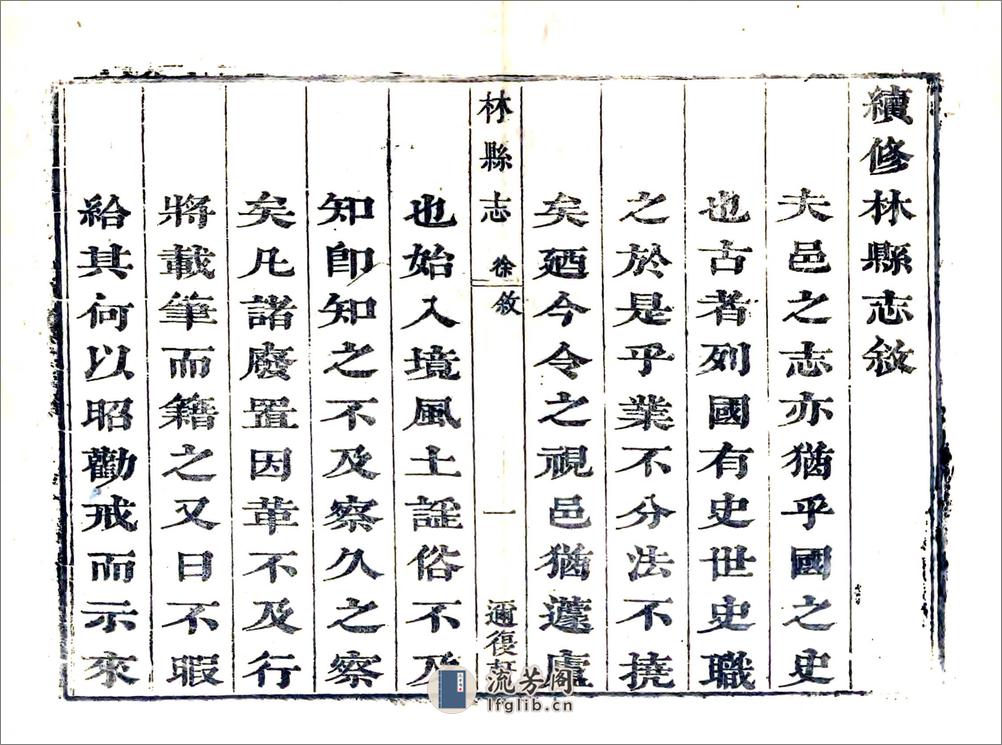 續修林縣志敘
夫邑之志亦猶乎國之史
也古者列國有史世史職
之於是乎業不分法不撓
矣廼今令之視邑猶蘧廬
林縣志 徐敘 一 邇復軒
也始入境風土謠俗不及
知卽知之不及察久之察
矣凡諸廢置因革不及行
將載筆而籍之又日不暇
給其何以昭勸戒而示來
流芳阁
lfglib.cn